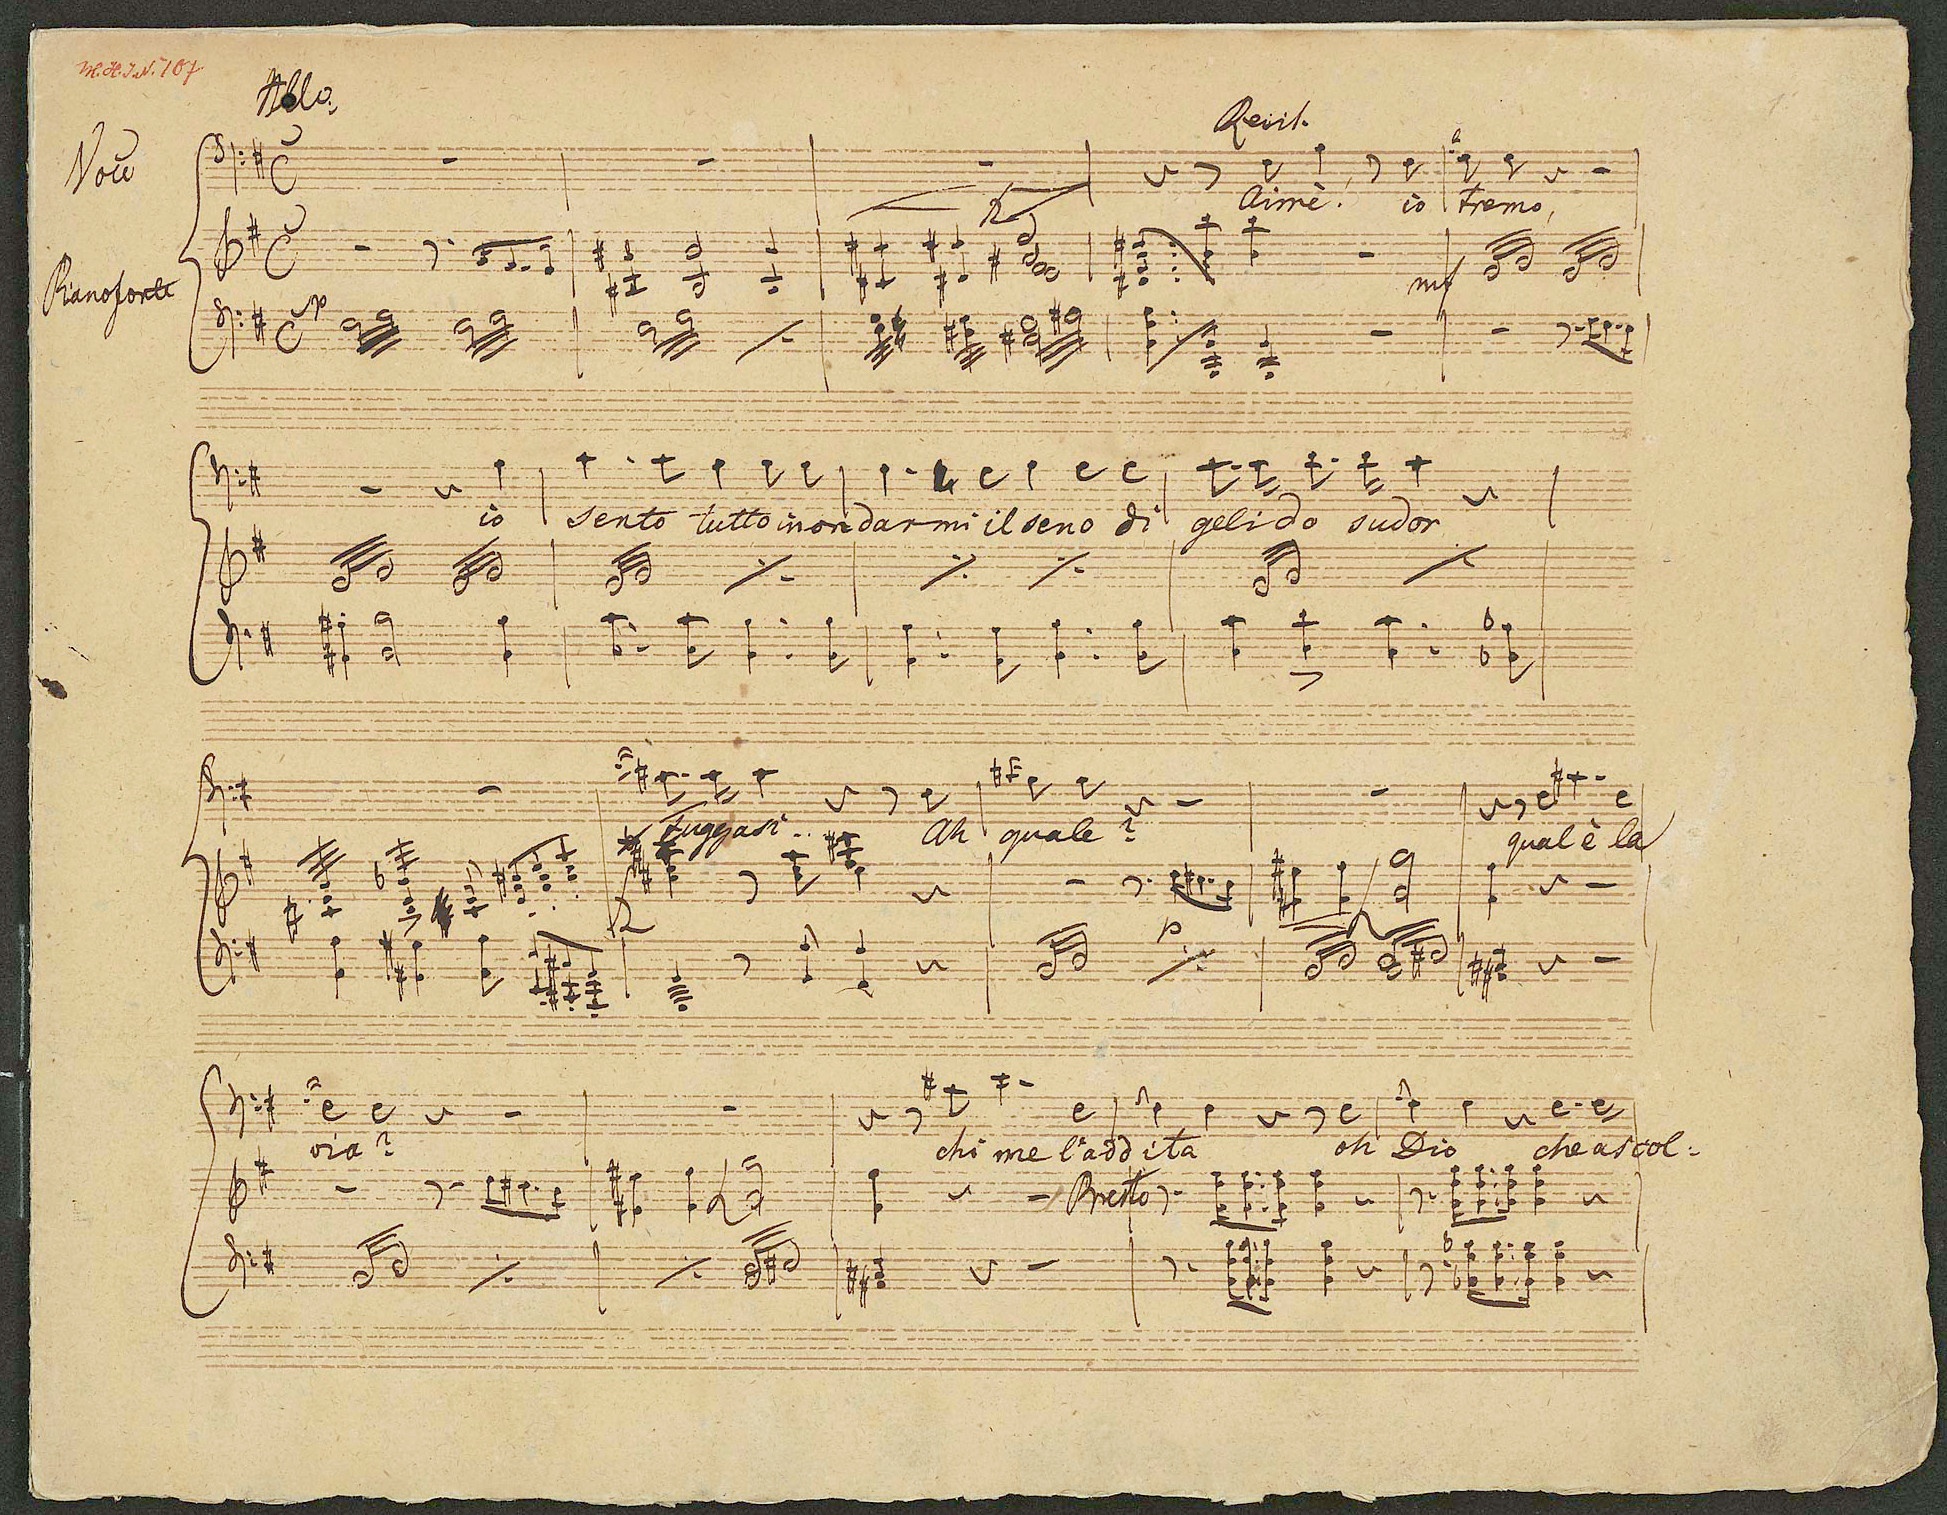 M.H.I.N. 107
Allo.
Voce
Recit.
Aimè! io tremo,
Pianoforte
p
mf
io sento tutto inondarmi il seno di gelido sudor
fuggasi.. Ah quale? qual è la
p
via? chi me l'addita oh Dio che ascol:
Presto